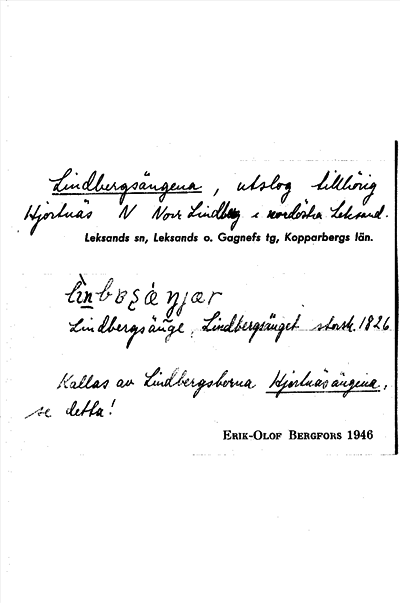 Lindbergsängena, utslog tillhörig
Hjortnäs N Norr Lindberg i nordöstra Leksand.
Leksands sn, Leksands o. Gagnefs tg, Kopparbergs län.
Lindbergsänge, Lindbergsänget storsk. 1826
Kallas av Lindbergsborna Hjortnäsängena,
se detta!
ERIK-OLOF BERGFORS 1946